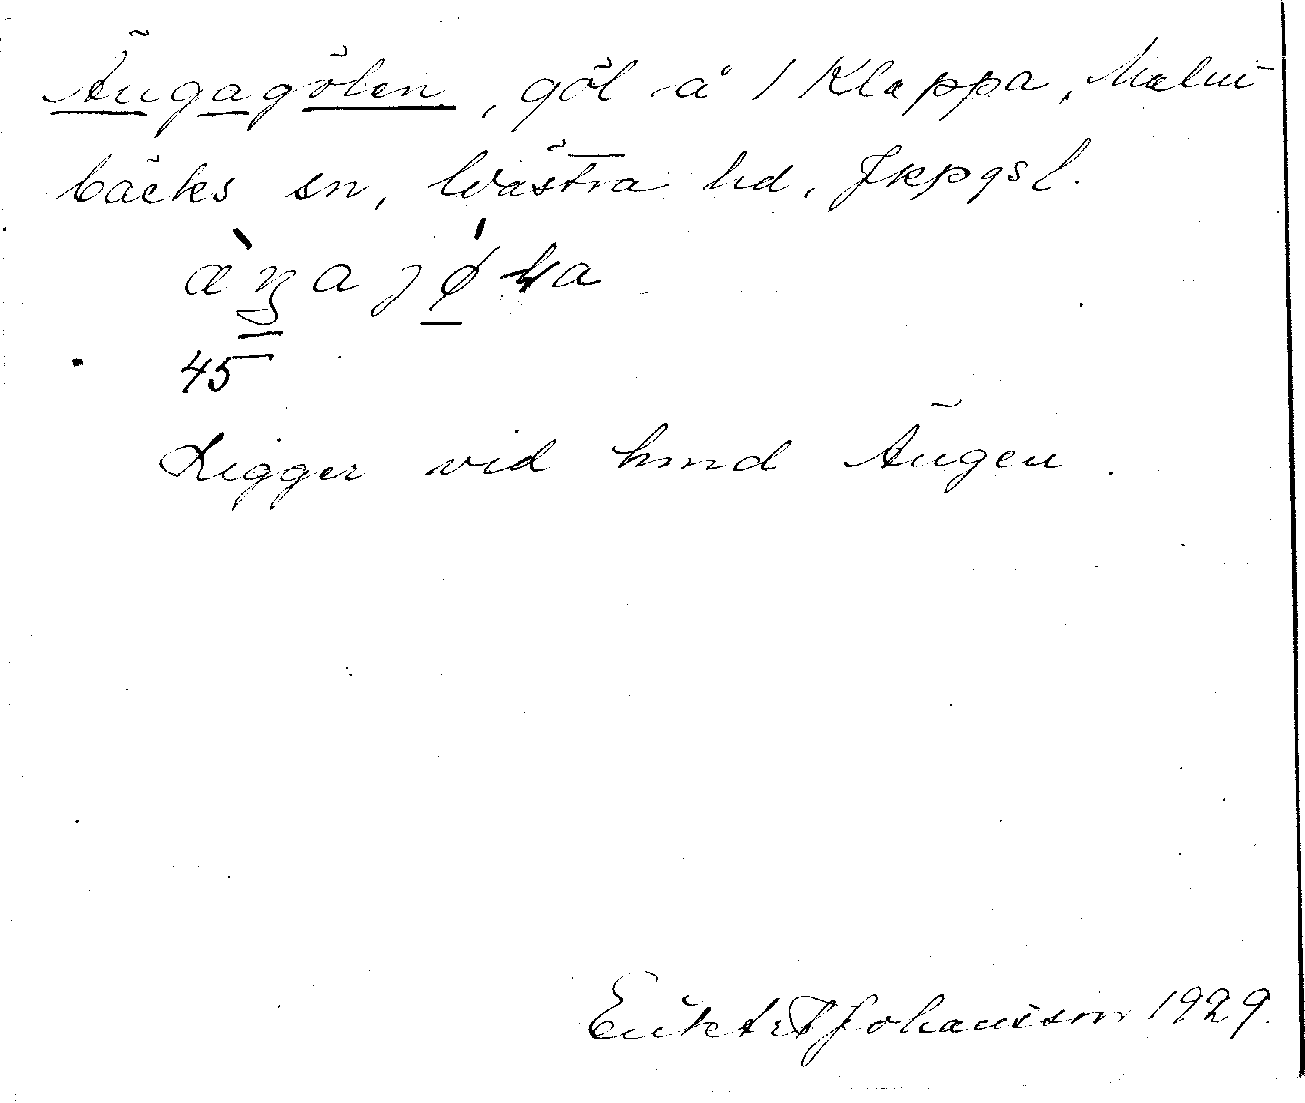 Ängagölen, göl å 1 Klappa, Malm
bäcks sn, Västra hd, Jkpgs l.
45
Ligger vid hmd Ängen.
Johansson 1929.